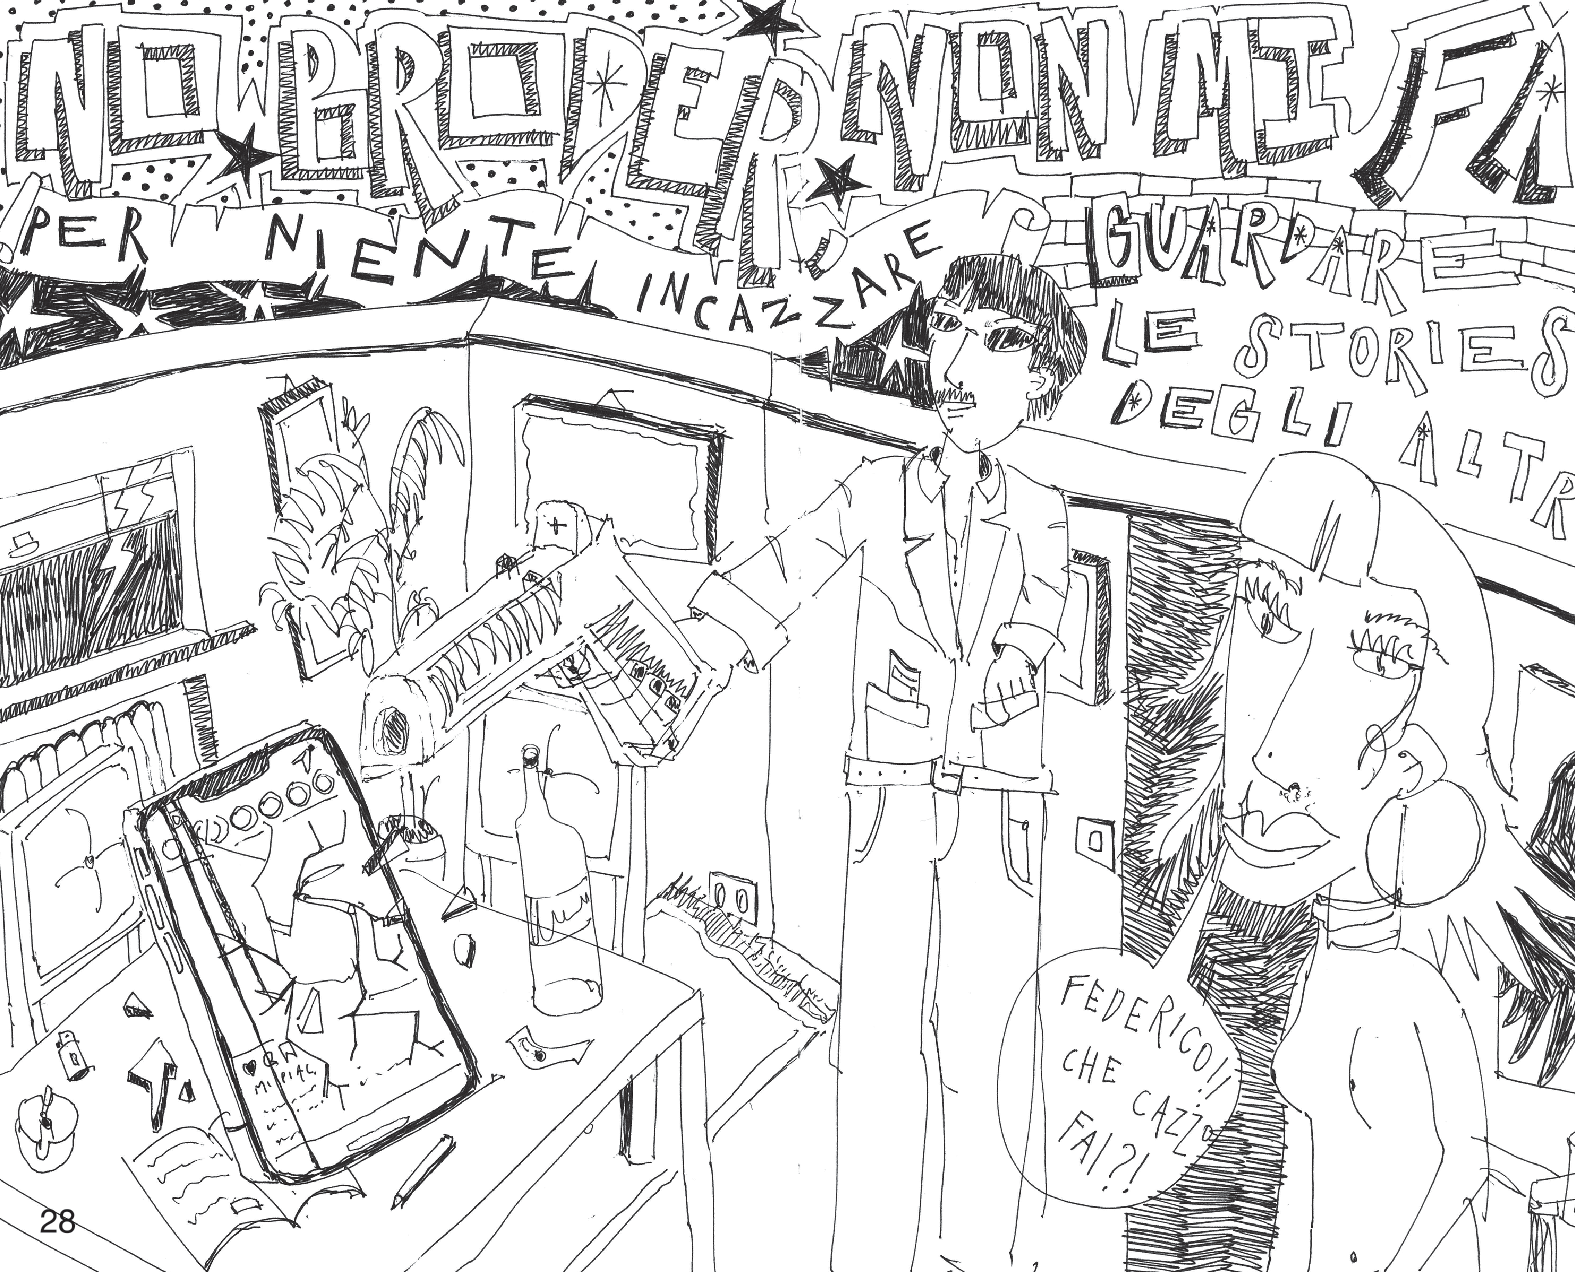 NO BRO DEP NON MI FA
PER NIENTE INCAZZARE
GUARDARE
LE STORIES
DEGLI ALTR
FEDERICO!!
CHE CAZZO
FAI?!
28